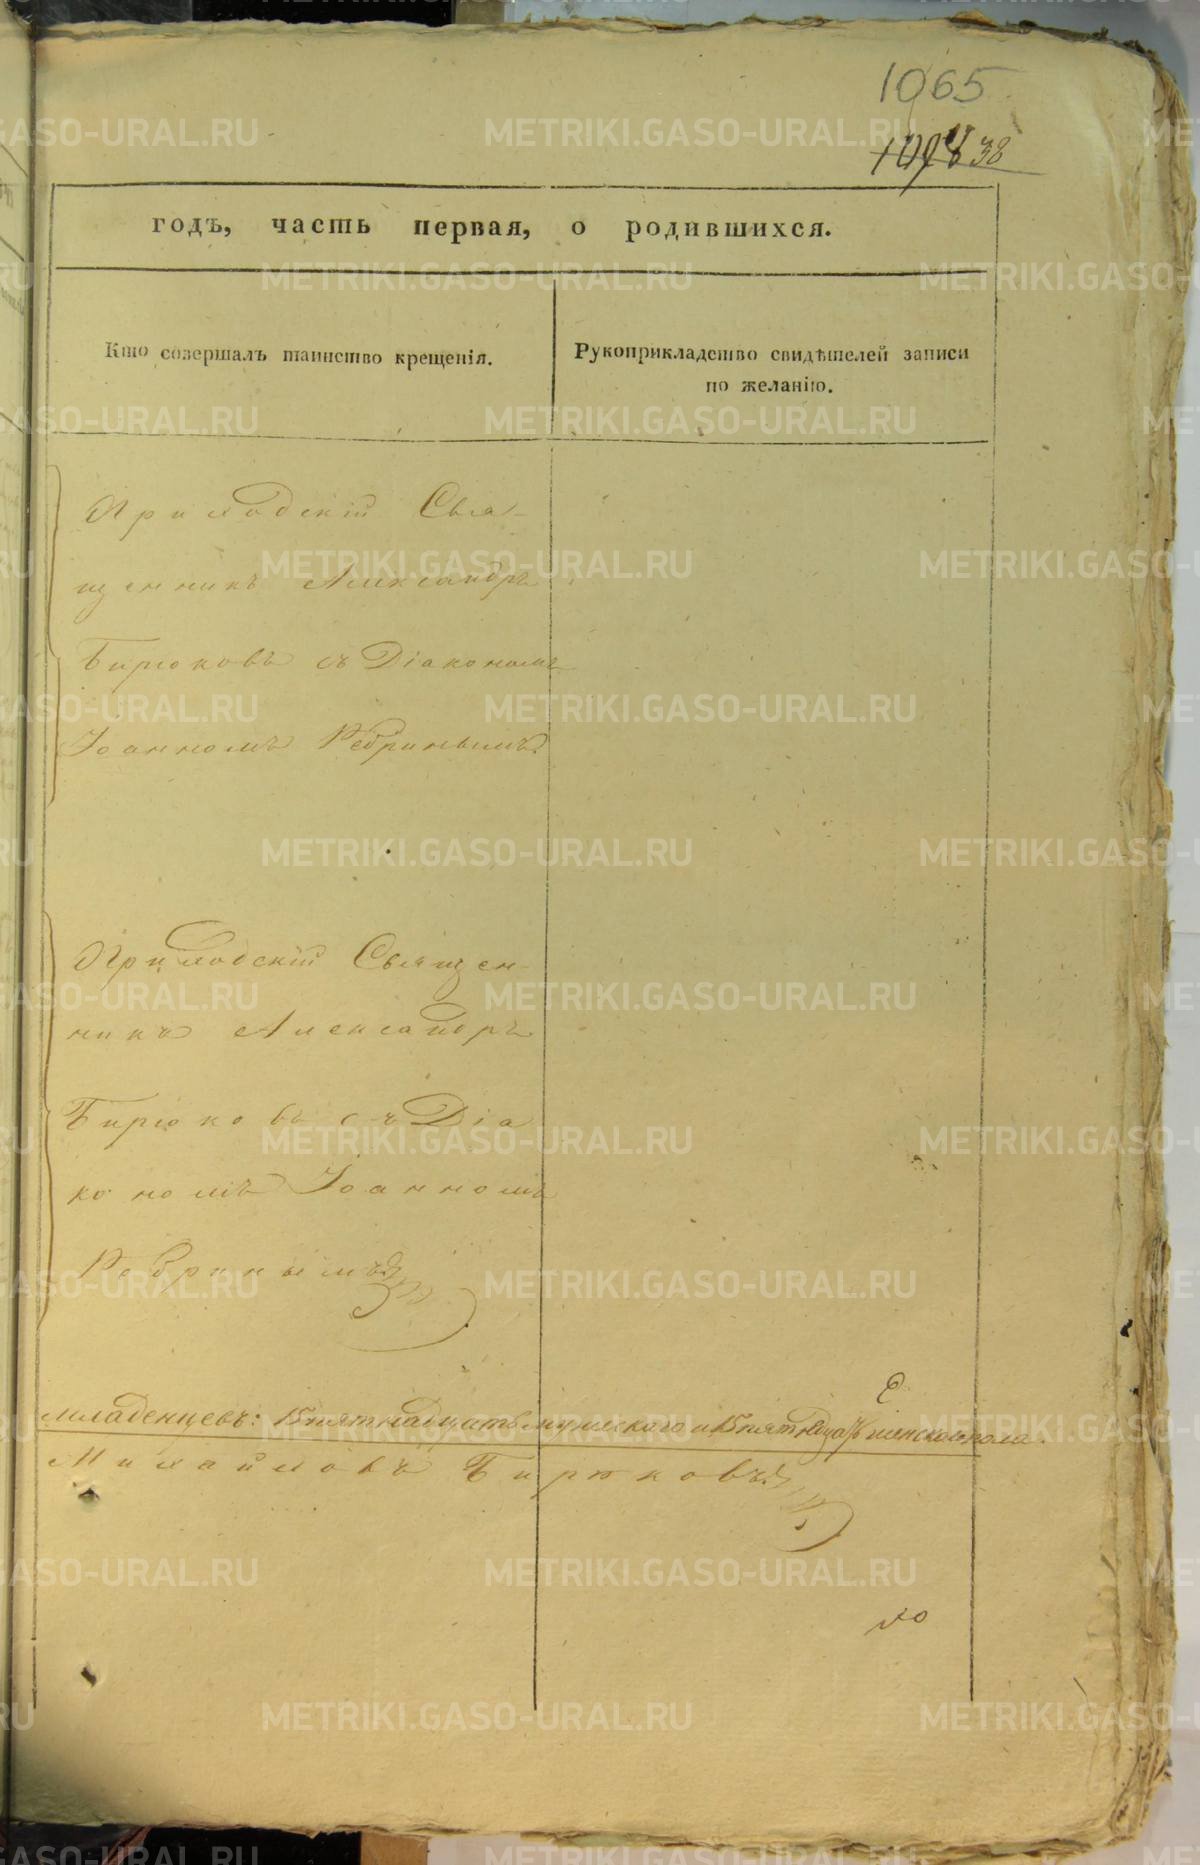 1065
38
годъ, часть первая, о родившихся.
Кто совершалъ таинство крещенія.
Рукоприкладство свидѣтелей записи
по желанію.
Приходскій Свя-
щенникъ Александръ
Бирюковъ съ Діакономъ
Іоанномъ Ребринымъ
Приходскій Священ-
никъ Александръ
Бирюковъ съ Діа
кономъ Іоанномъ
Ребринымъ
младенцевъ: 15 пятнадцать мужескаго и 15 пятнадцать женского пола.
Михайловъ Бирюковъ
METRIKI.GASO-URAL.RU